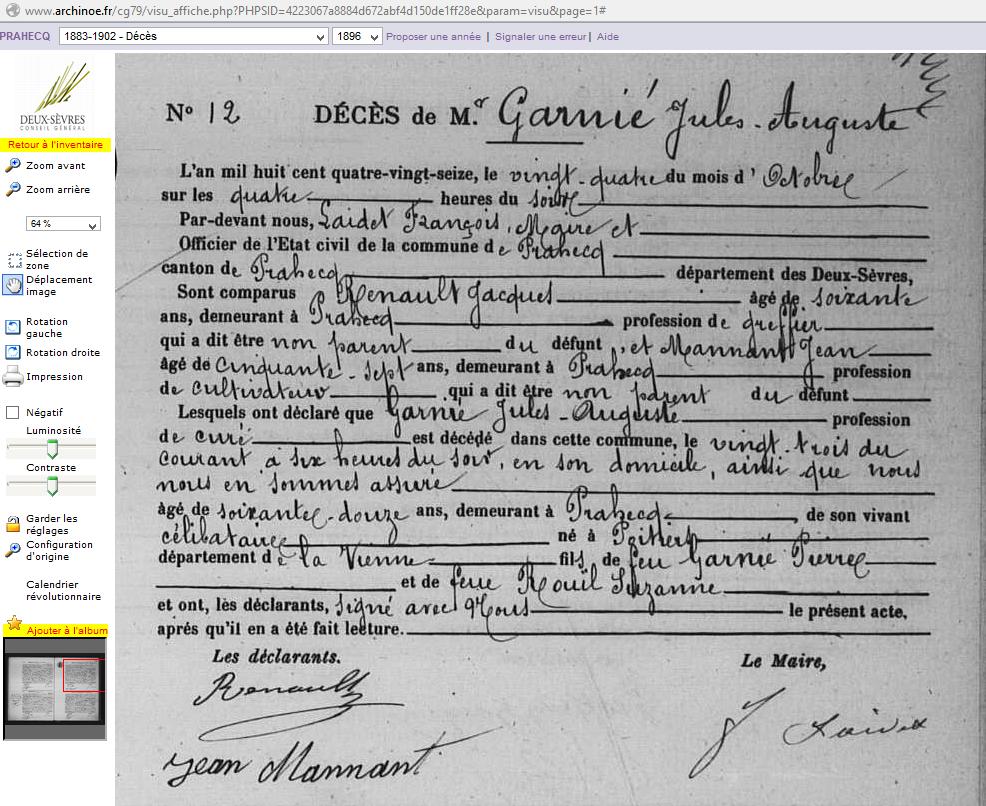 www.archinoe.fr/cg79/visu_affiche.php?PHPSID=4223067a8884d672abf4d150de1ff28e&param=visu&page=1#
PRAHECQ 1883-1902 - Décès 1896 Proposer une année | Signaler une erreur | Aide
DEUX-SÈVRES
CONSEIL GÉNÉRAL
Retour à l'inventaire
Zoom avant
Zoom arrière
64 %
Sélection de
zone
Déplacement
image
Rotation
gauche
Rotation droite
Impression
Négatif
Luminosité
Contraste
Garder les
réglages
Configuration
d'origine
Calendrier
révolutionnaire
Ajouter à l'album
No 12 DÉCÈS de M.r Garnié Jules-Auguste
L'an mil huit cent quatre-vingt-seize, le vingt-quatre du mois d'Octobre
sur les quatre heures du soir
Par-devant nous, Laidet François, Maire et
Officier de l'Etat civil de la commune de Prahecq
canton de Prahecq département des Deux-Sèvres,
Sont comparus Renault Jacques âgé de soixante
ans, demeurant à Prahecq profession de greffier
qui a dit être non parent du défunt, et Mannant Jean
âgé de cinquante-sept ans, demeurant à Prahecq profession
de cultivateur qui a dit être non parent du défunt
Lesquels ont déclaré que Garnié Jules-Auguste profession
de curé est décédé dans cette commune, le vingt-trois du
courant à six heures du soir, en son domicile, ainsi que nous
nous en sommes assuré
âgé de soixante-douze ans, demeurant à Prahecq, de son vivant
célibataire né à Poitiers
département de la Vienne fils de feu Garnié Pierre
et de feue Rouïl Suzanne
et ont, lès déclarants, signé avec Nous le présent acte,
après qu'il en a été fait lecture.
Les déclarants. Le Maire,
Renault
Jean Mannant